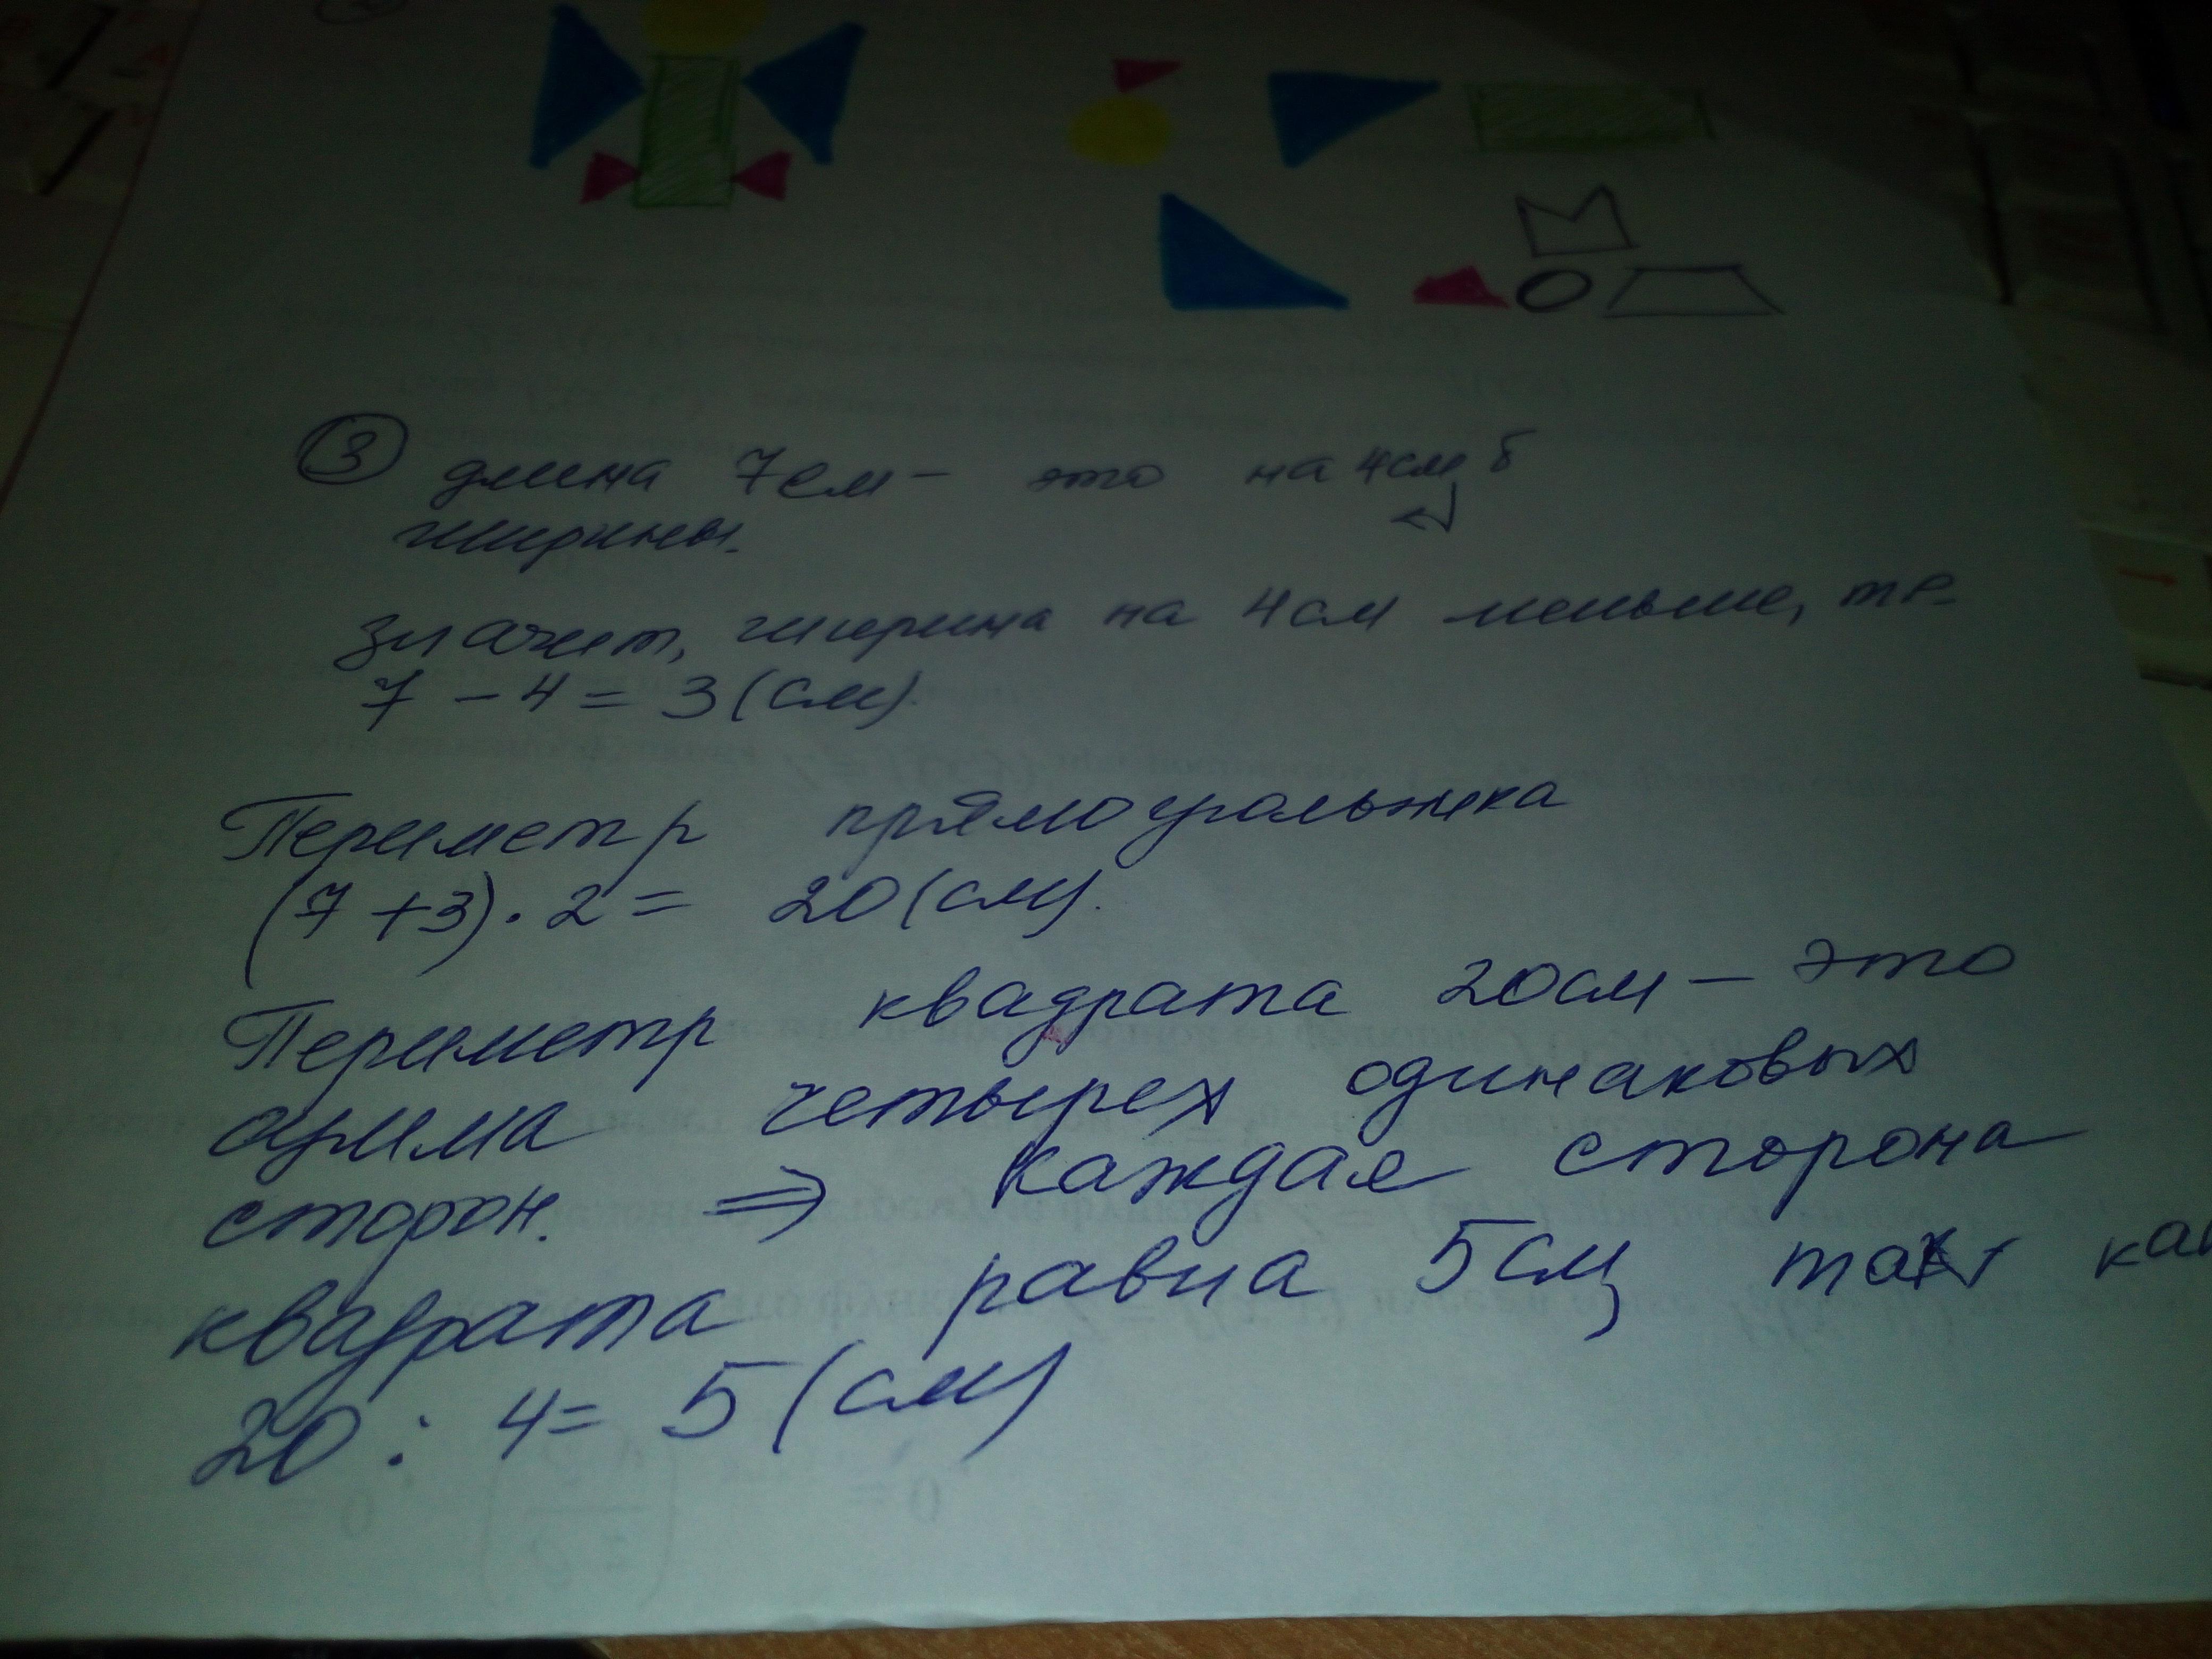 3 длина 7см – это на 4см б
ширины.
Значит, ширина на 4см меньше, т.е.
7 – 4 = 3 (см).
Периметр прямоугольника
(7 + 3) · 2 = 20 (см).
Периметр квадрата 20см – это
сумма четырех одинаковых
сторон. ⇒ каждая сторона
квадрата равна 5см, так как
20 : 4 = 5 (см)